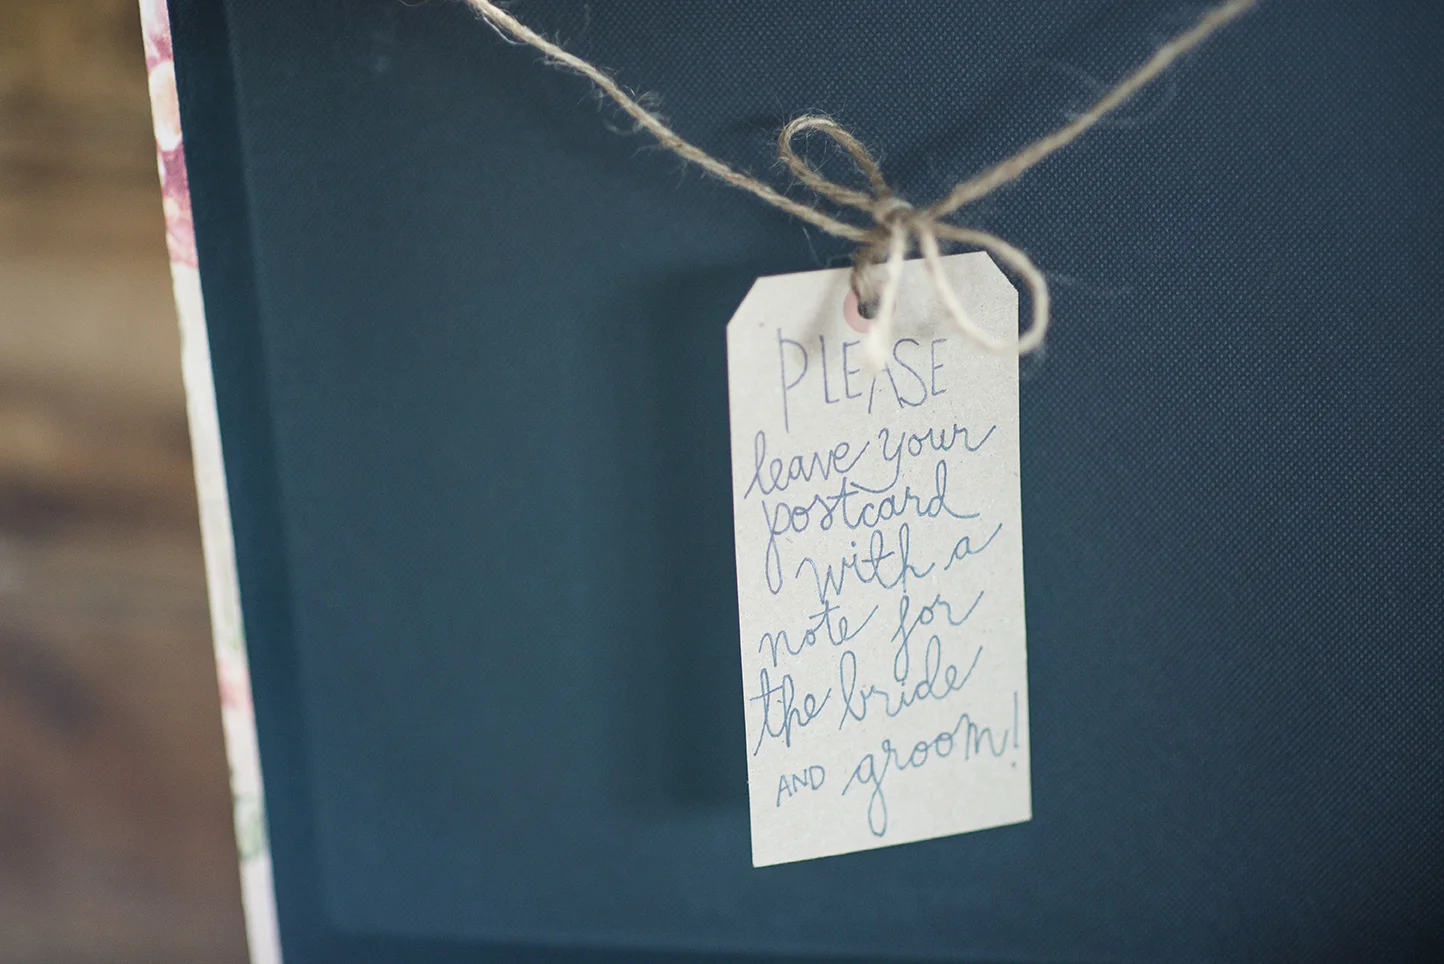 PLEASE
leave your
postcard
with a
note for
the bride
AND groom!